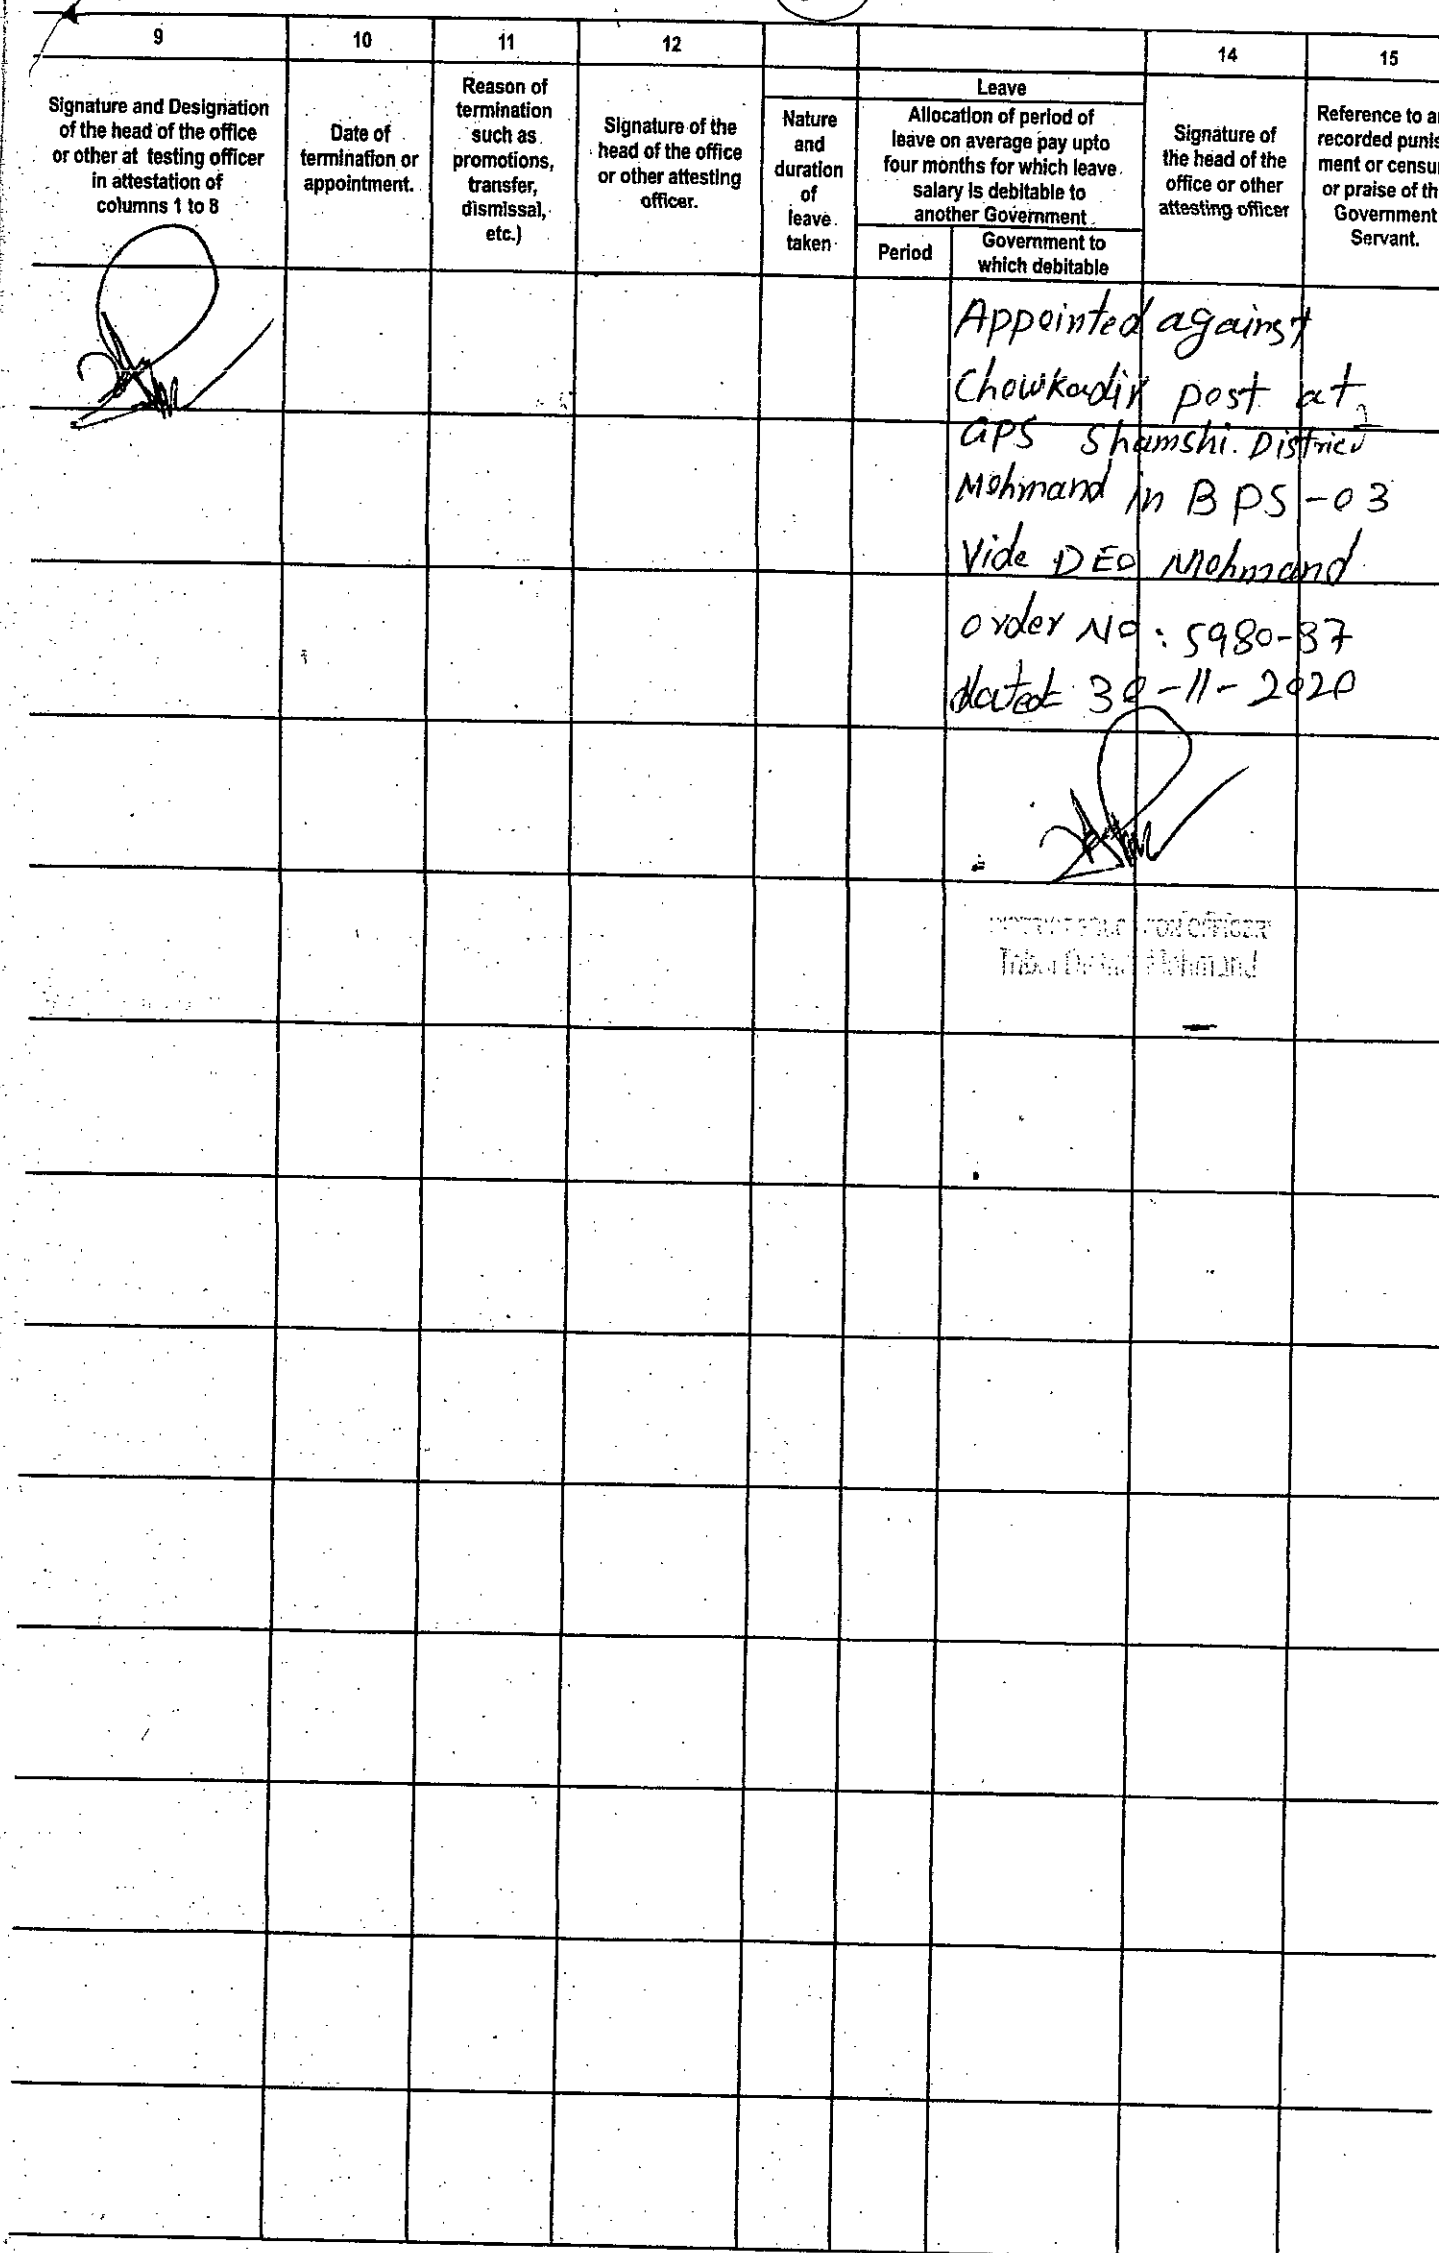 9
10
11
12
14
15
Signature and Designation
of the head of the office
or other at testing officer
in attestation of
columns 1 to 8
Date of
termination or
appointment.
Reason of
termination
such as
promotions,
transfer,
dismissal,
etc.)
Signature of the
head of the office
or other attesting
officer.
Leave
Nature
and
duration
of
leave
taken
Allocation of period of
leave on average pay upto
four months for which leave
salary is debitable to
another Government
Period
Government to
which debitable
Signature of
the head of the
office or other
attesting officer
Reference to a
recorded punis
ment or censu
or praise of th
Government
Servant.
Appointed against
Chowkadir post at
GPS Shamshi. District
Mohmand in BPS-03
Vide DEO Mohmand
order No: 5980-87
dated 30-11-2020
Mohmand